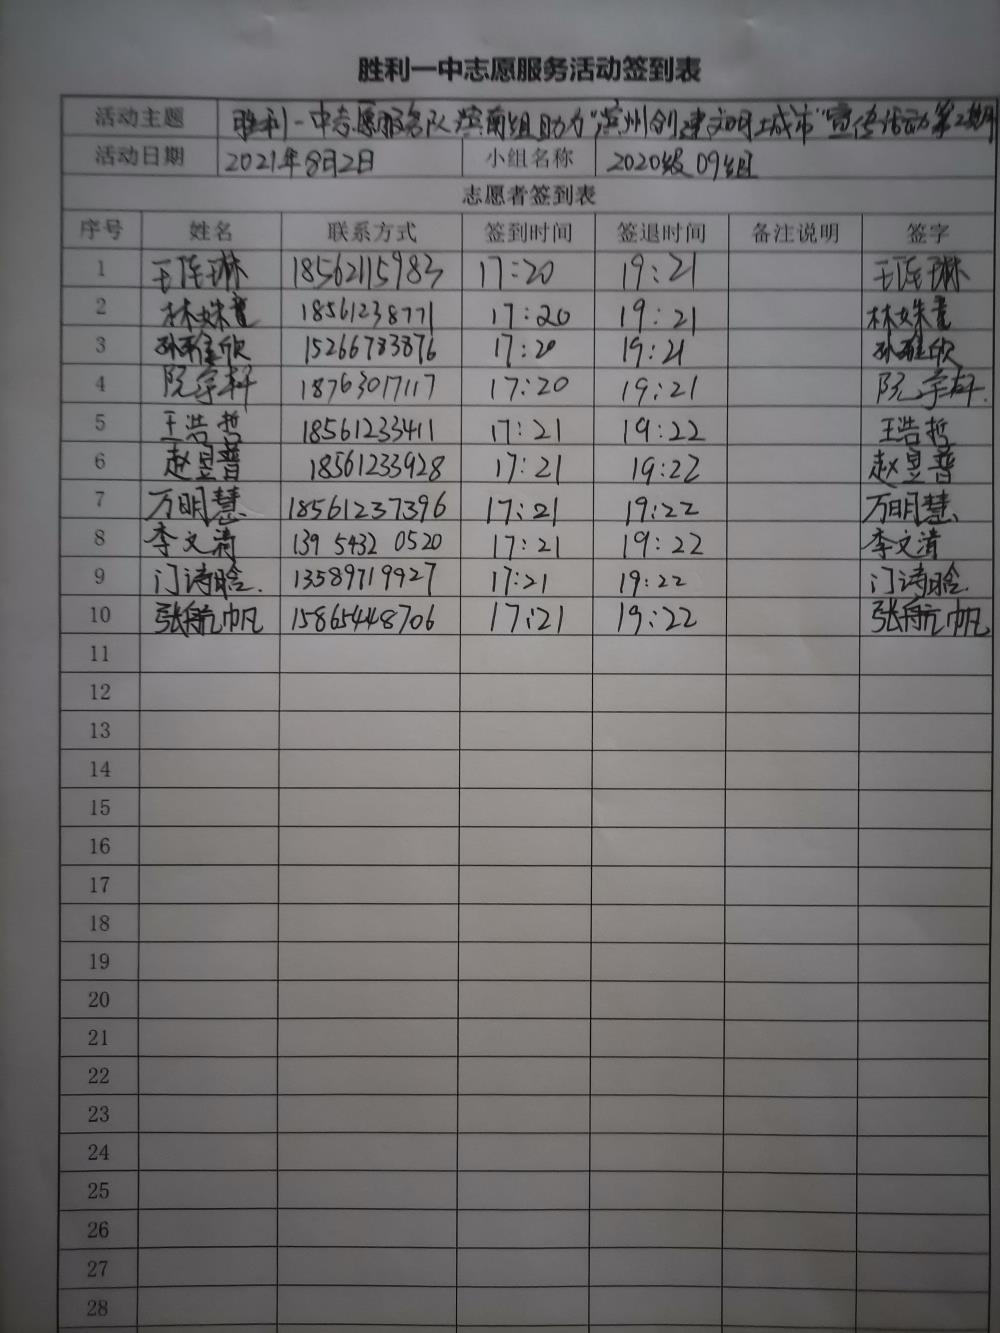 胜利一中志愿服务活动签到表
活动主题 胜利一中志愿服务队滨南组助力"滨州创建文明城市"宣传活动第2期
活动日期 2021年8月2日 小组名称 2020级09组
志愿者签到表
序号 姓名 联系方式 签到时间 签退时间 备注说明 签字
1 18562115983 17:20 19:21
2 林姝童 18561238771 17:20 19:21 林姝童
3 孙雅欣 15266783876 17:20 19:21 孙雅欣
4 阮学科 18763017117 17:20 19:21 阮学科.
5 王浩哲 18561233411 17:21 19:22 王浩哲
6 赵昱普 18561233928 17:21 19:22 赵昱普
7 万明慧 18561237396 17:21 19:22 万明慧
8 李文清 139 5432 0520 17:21 19:22 李文清
9 门诗晗. 13589719927 17:21 19:22 门诗晗.
10 张航帆 15865448706 17:21 19:22 张航帆
11
12
13
14
15
16
17
18
19
20
21
22
23
24
25
26
27
28